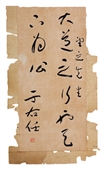 先生
大道之行也天
下為公
于右任